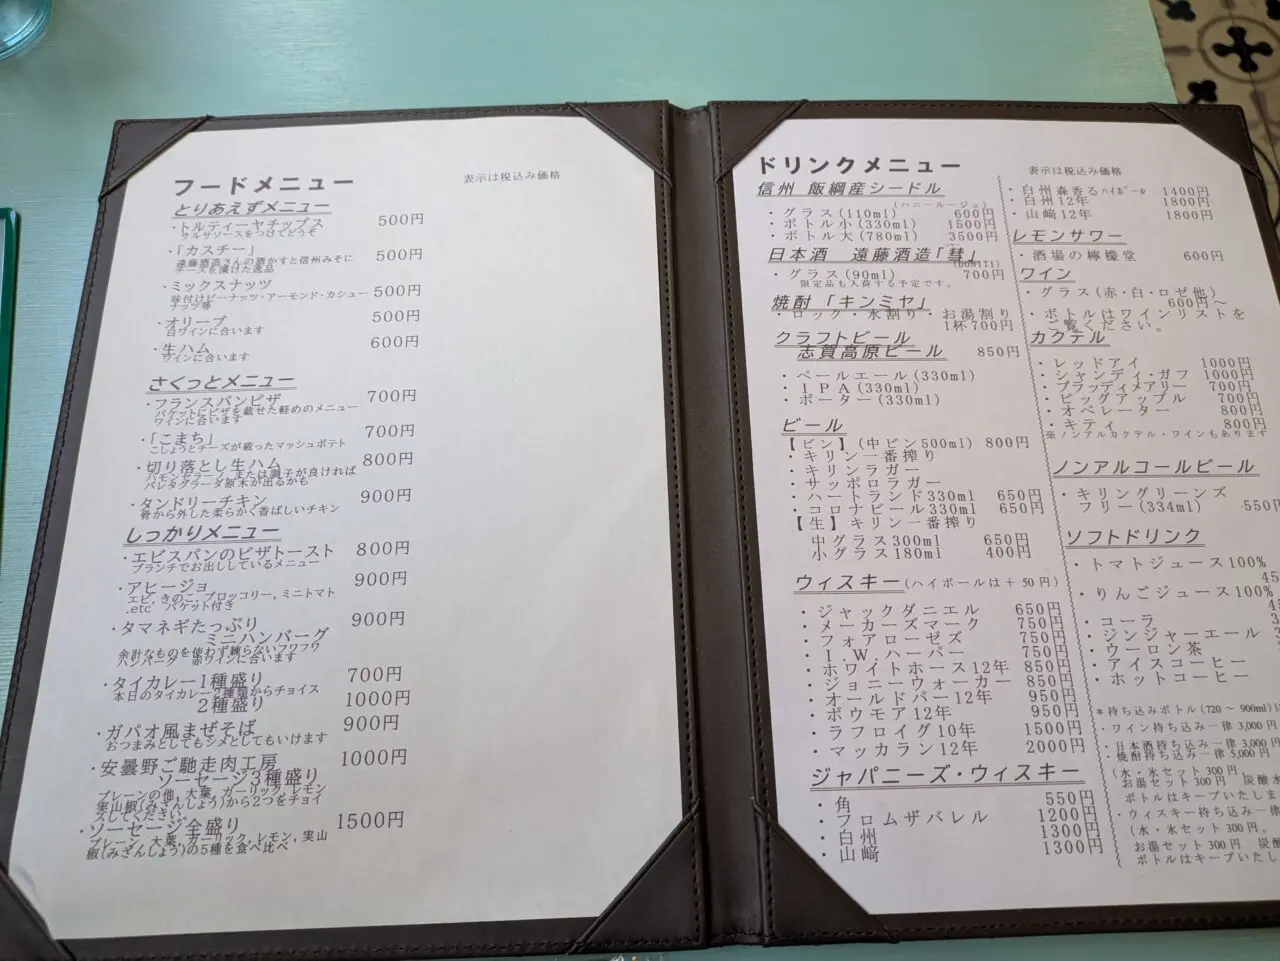 フードメニュー
表示は税込み価格
とりあえずメニュー
・トルティーヤチップス 500円
サルサソースをつけてどうぞ
・「カスチー」 500円
遠藤酒造さんの酒かすと信州みそに
チーズを漬けた逸品
・ミックスナッツ
味付けピーナッツ・アーモンド・カシュー 500円
ナッツ等
・オリーブ 500円
白ワインに合います
・生ハム 600円
ワインに合います
さくっとメニュー
・フランスパンピザ 700円
バケットにピザを載せた軽めのメニュー
ワインに合います
・「こまち」 700円
こしょうとチーズが載ったマッシュポテト
・切り落とし生ハム 800円
ハモンセラーノ、または調子が良ければ
パレタグラーダ原木が出るかも
・タンドリーチキン 900円
骨から外した柔らかく香ばしいチキン
しっかりメニュー
・エビスパンのピザトースト 800円
ブランチでお出ししているメニュー
・アヒージョ 900円
エビ、きのこ、ブロッコリー、ミニトマト
.etc バケット付き
・タマネギたっぷり 900円
ミニハンバーグ
余計なものを使わず練らないフワフワ
ハンバーグ 赤ワインに合います
・タイカレー1種盛り 700円
本日のタイカレー2種類からチョイス
2種盛り 1000円
・ガパオ風まぜそば 900円
おつまみとしてもシメとしてもいけます
・安曇野ご馳走肉工房 1000円
ソーセージ3種盛り
プレーンの他、大葉、ガーリック、レモン
実山椒(みざんしょう)から2つをチョイ
スしてください。
・ソーセージ全盛り 1500円
プレーン、大葉、ガーリック、レモン、実山
椒(みざんしょう)の5種を食べ比べ
ドリンクメニュー
表示は税込み価格
信州 飯綱産シードル
(ハニールージュ)
・グラス(110ml) 600円
・ボトル小(330ml) 1500円
・ボトル大(780ml) 3500円
日本酒 遠藤酒造「彗」
・グラス(90ml) 700円
限定品も入荷する予定です。
焼酎「キンミヤ」
・ロック・水割り・お湯割り
1杯700円
クラフトビール
志賀高原ビール 850円
・ペールエール(330ml)
・IPA(330ml)
・ポーター(330ml)
ビール
【ビン】(中ビン500ml) 800円
・キリン一番搾り
・キリンラガー
・サッポロラガー
・ハートランド330ml 650円
・コロナビール330ml 650円
【生】キリン一番搾り
中グラス300ml 650円
小グラス180ml 400円
ウィスキー(ハイボールは+50円)
・ジャックダニエル 650円
・メーカーズマーク 750円
・フォアローゼズ 750円
・I.W.ハーパー 750円
・ホワイトホース12年 850円
・ジョニーウォーカー 850円
・オールドパー12年 950円
・ボウモア12年 950円
・ラフロイグ10年 1500円
・マッカラン12年 2000円
ジャパニーズ・ウィスキー
・角 550円
・フロムザバレル 1200円
・白州 1300円
・山﨑 1300円
・白州森香るハイボール 1400円
・白州12年 1800円
・山﨑12年 1800円
レモンサワー
・酒場の檸檬堂 600円
ワイン
・グラス(赤・白・ロゼ他)
600円～
・ボトルはワインリストを
ご覧ください。
カクテル
・レッドアイ 1000円
・シャンディ・ガフ 1000円
・ブラッディメアリー 700円
・ビッグアップル 700円
・オペレーター 800円
・キティ 800円
※ノンアルカクテル・ワインもあります
ノンアルコールビール
・キリングリーンズ
フリー(334ml) 550円
ソフトドリンク
・トマトジュース100%
45
・りんごジュース100%
・コーラ
・ジンジャーエール
・ウーロン茶
・アイスコーヒー
・ホットコーヒー
*持ち込みボトル(720～900ml)に
・ワイン持ち込み一律 3,000円
・日本酒持ち込み一律 3,000円
・焼酎持ち込み一律 5,000円
(水・氷セット300円
お湯セット300円 炭酸水
ボトルはキープいたしま
・ウィスキー持ち込み一律
(水・氷セット300円、
お湯セット300円 炭酸
ボトルはキープいたし